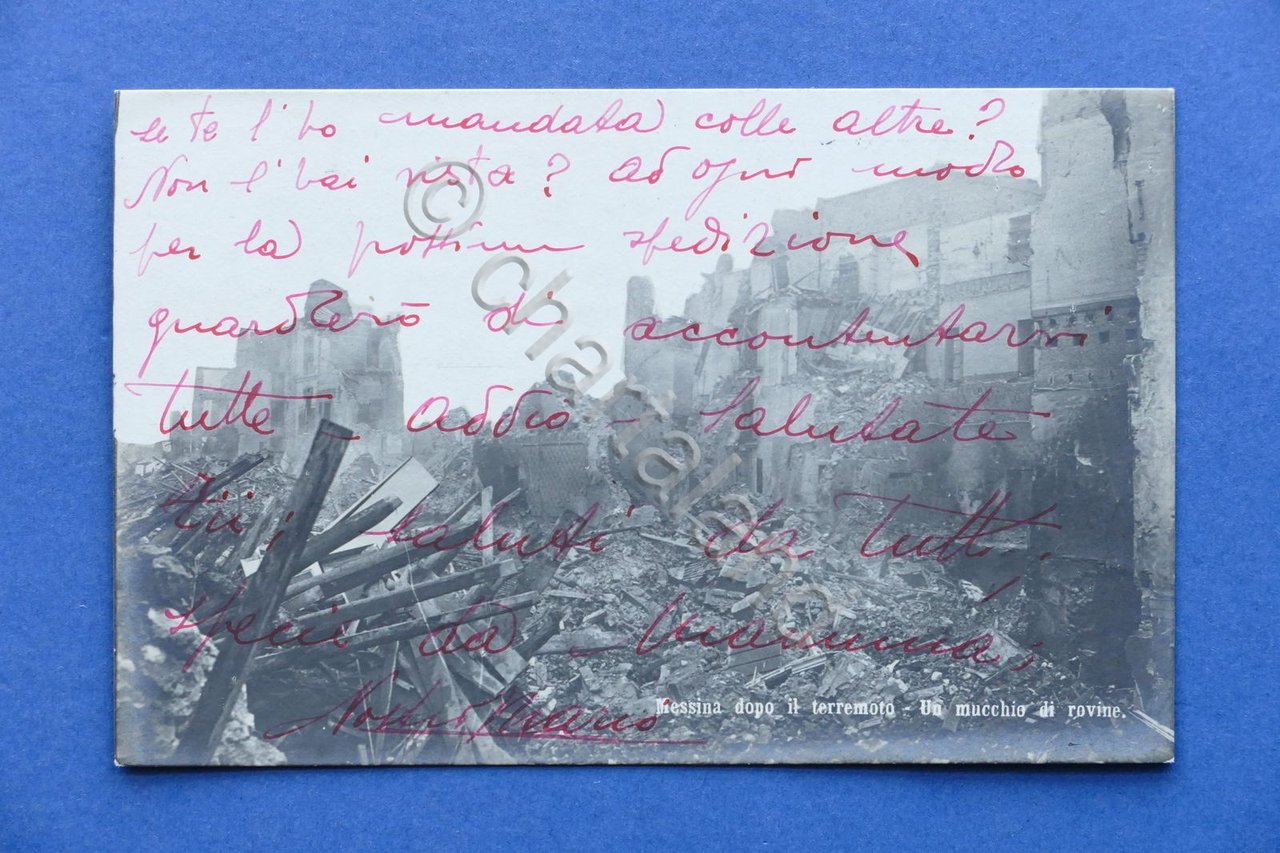 se te l'ho mandata colle altre?
Non l'hai vista? Ad ogni modo
per la prossima spedizione
guarderò di accontentarvi
tutte Addio - Salutate
Zii; saluti da tutti;
specie da Mamma;
Vostro
Messina dopo il terremoto - Un mucchio di rovine.
© charta